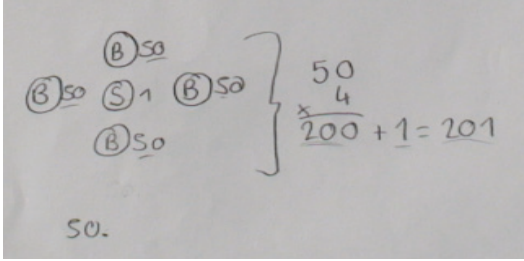 B 50
B 50 S 1 B 50
B 50
50
x 4
200 + 1 = 201
50.